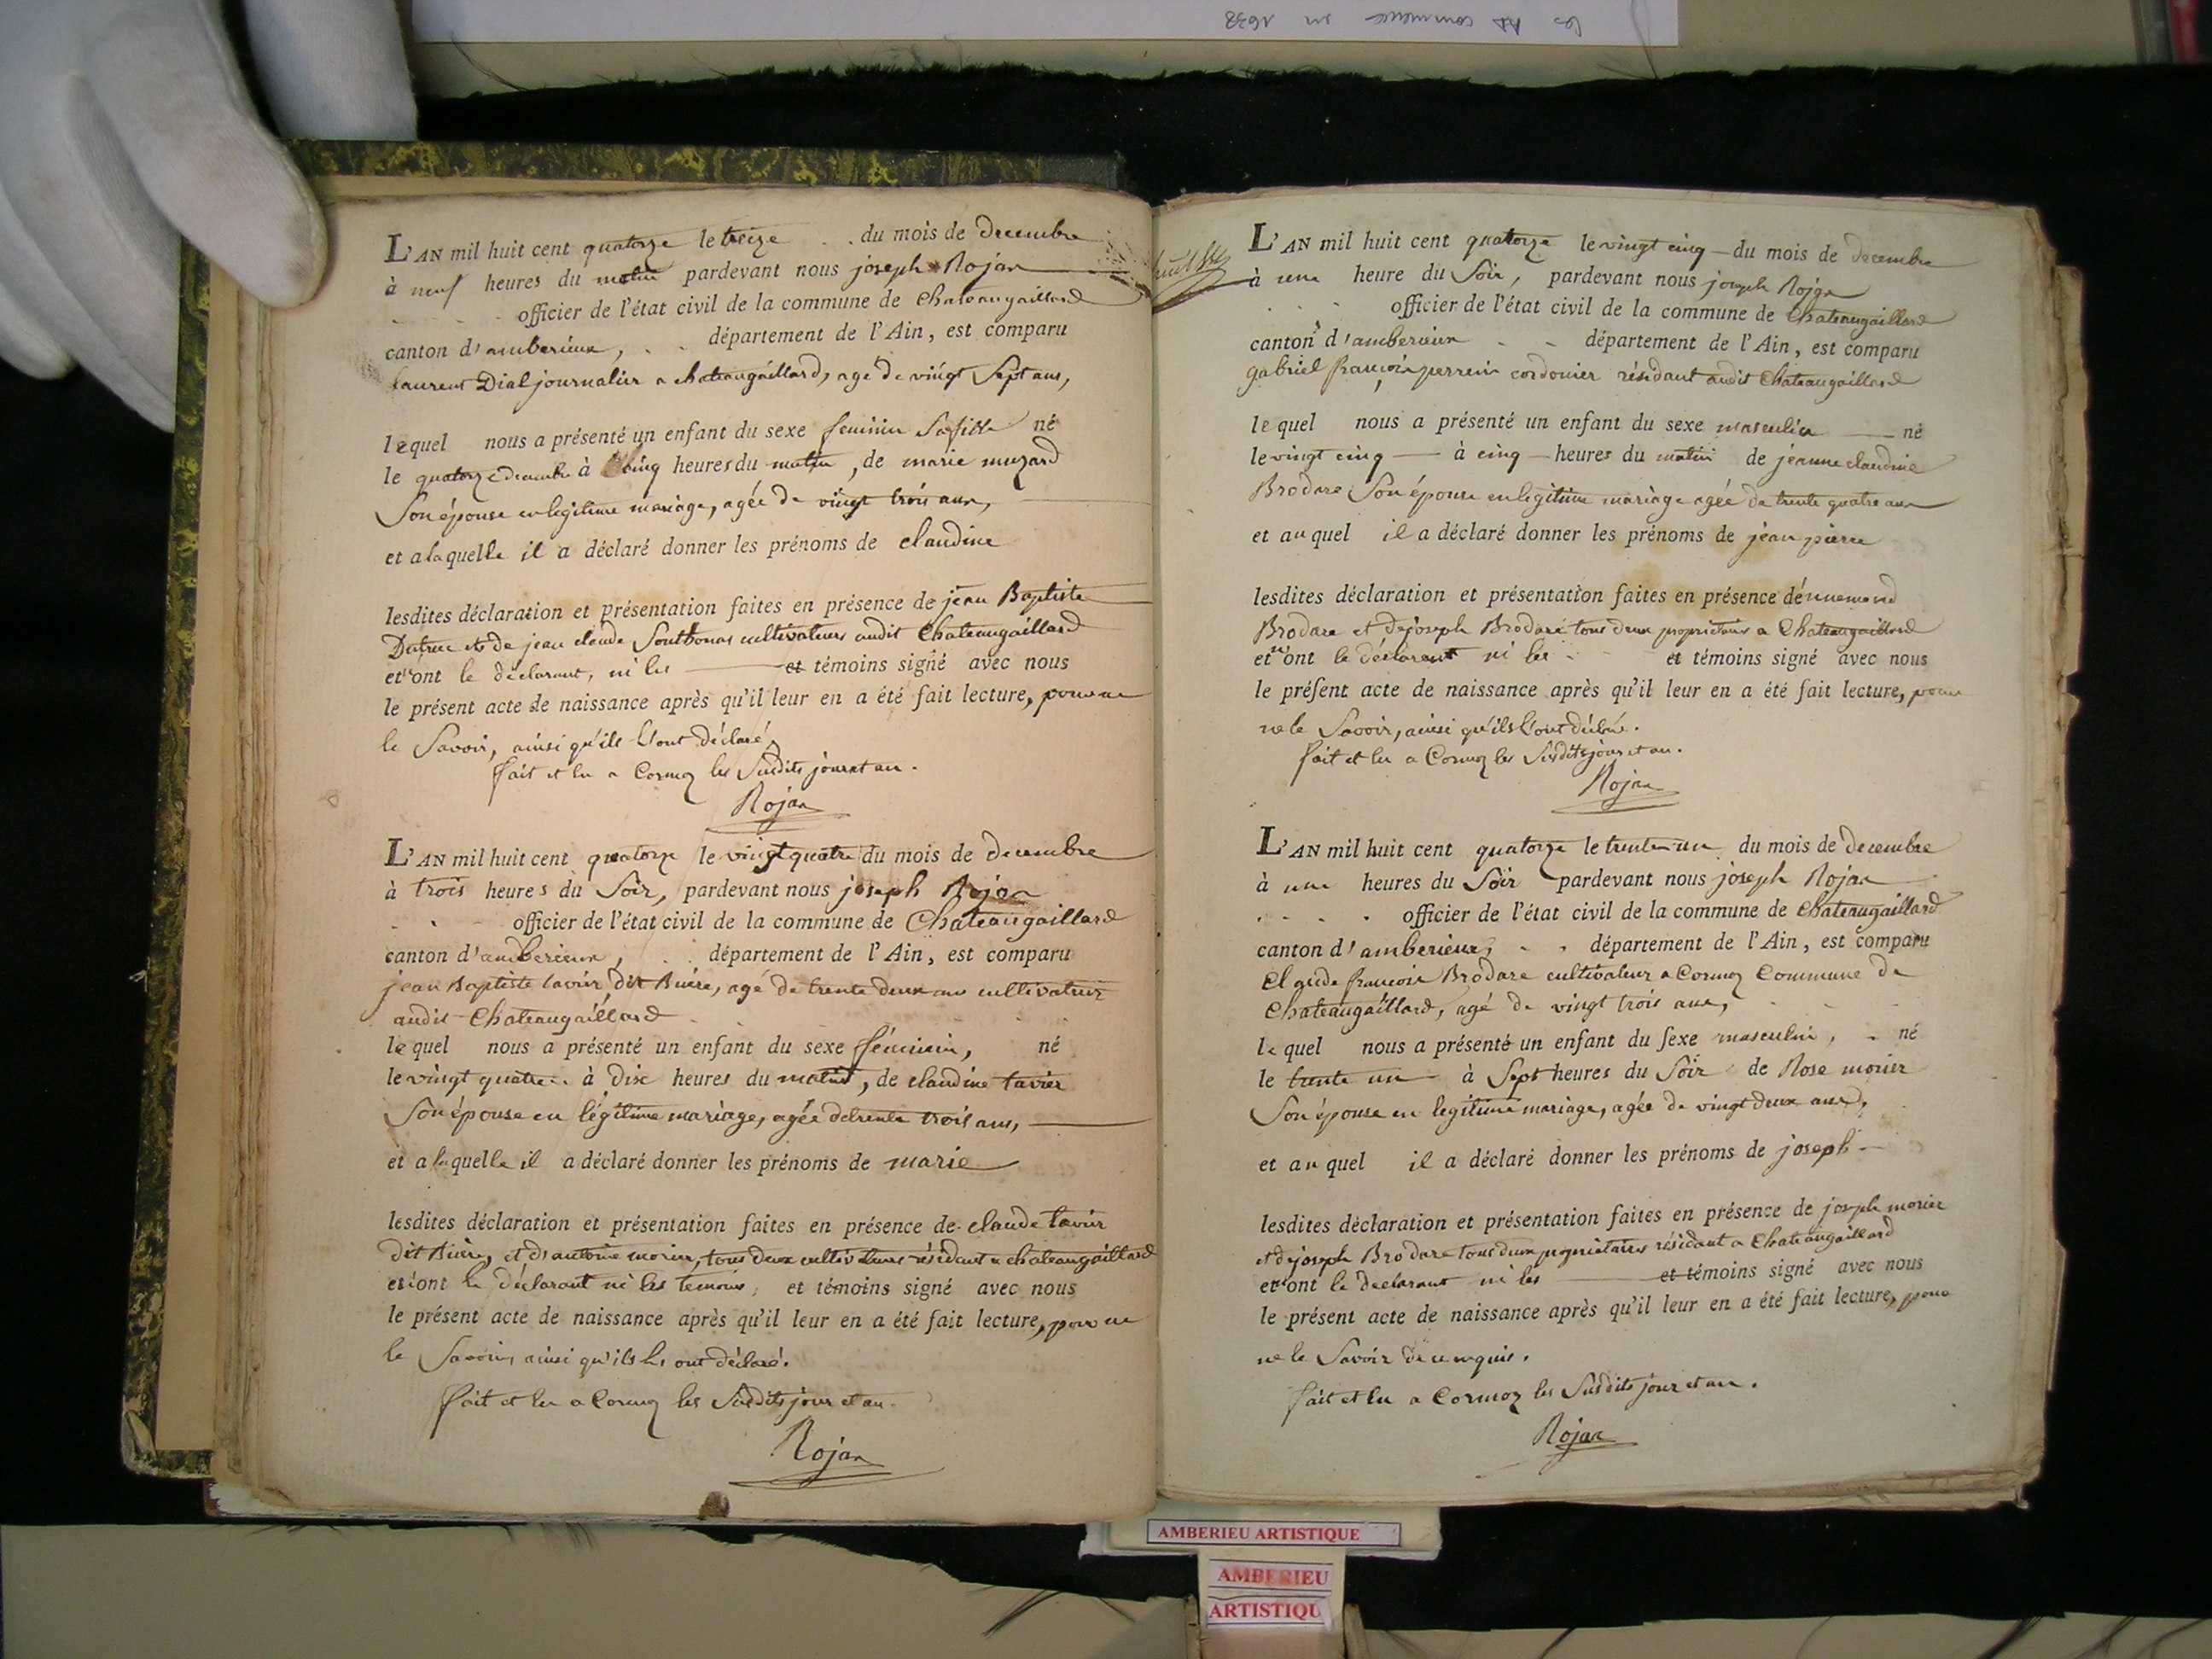 les commence en 1638
L'AN mil huit cent quatorze le treize du mois de decembre
à neuf heures du matin pardevant nous joseph Rojan
officier de l'état civil de la commune de Chateaugaillard
canton d'amberieux, département de l'Ain, est comparu
laurent Dial journalier a chateaugaillard, age de vingt Sept ans,
lequel nous a présenté un enfant du sexe feminin Sa fille né
le quatorze decembre à Cinq heures du matin, de marie muzard
Son épouse en legitime mariage, agée de vingt trois ans,
et a laquelle il a déclaré donner les prénoms de claudine
lesdites déclaration et présentation faites en présence de jean Baptiste
Dutruc et de jean claude Southonas cultivateurs audit Chateaugaillard
et n'ont le déclarant, ni les et témoins signé avec nous
le présent acte de naissance après qu'il leur en a été fait lecture, pour ne
le Savoir, ainsi qu'ils l'ont déclaré,
fait et lu a Cormoz les Susdits jour et an.
Rojan
L'AN mil huit cent quatorze le vingt quatre du mois de decembre
à trois heures du Soir, pardevant nous joseph Rojan
officier de l'état civil de la commune de Chateaugaillard
canton d'amberieux, département de l'Ain, est comparu
jean Baptiste tavier dit Buire, agé de trente deux ans cultivateur
audit Chateaugaillard
lequel nous a présenté un enfant du sexe féminin, né
le vingt quatre à dix heures du matin, de claudine tavier
Son épouse en légitime mariage, agée de trente trois ans,
et a laquelle il a déclaré donner les prénoms de marie
lesdites déclaration et présentation faites en présence de claude tavier
dit Buire, et d'antoine morier, tous deux cultivateurs résidant a chateaugaillard
et n'ont le déclarant ni les temoins, et témoins signé avec nous
le présent acte de naissance après qu'il leur en a été fait lecture, pour ne
le Savoir, ainsi qu'ils les ont déclaré.
fait et lu a Cormoz les Susdits jour et an.
Rojan
L'AN mil huit cent quatorze le vingt cinq du mois de decembre
à une heure du Soir, pardevant nous joseph Rojan
officier de l'état civil de la commune de Chateaugaillard
canton d'amberieux département de l'Ain, est comparu
gabriel françois perrein cordonier résidant audit Chateaugaillard
lequel nous a présenté un enfant du sexe masculin né
le vingt cinq à cinq heures du matin de jeanne claudine
Brodare Son épouse en legitime mariage agée de trente quatre ans
et auquel il a déclaré donner les prénoms de jean pierre
lesdites déclaration et présentation faites en présence d'ennemond
Brodare et de joseph Brodare tous deux proprietaires a Chateaugaillard
et n'ont le déclarant ni les et témoins signé avec nous
le présent acte de naissance après qu'il leur en a été fait lecture, pour
ne le Savoir, ainsi qu'ils l'ont déclaré.
fait et lu a Cormoz les Susdits jour et an.
Rojan
L'AN mil huit cent quatorze le trente un du mois de decembre
à une heures du Soir pardevant nous joseph Rojan
officier de l'état civil de la commune de Chateaugaillard
canton d'amberieux, département de l'Ain, est comparu
Claude françois Brodare cultivateur a Cormoz Commune de
Chateaugaillard, agé de vingt trois ans,
lequel nous a présenté un enfant du sexe masculin, né
le trente un à Sept heures du Soir de Rose morier
Son épouse en legitime mariage, agée de vingt deux ans,
et auquel il a déclaré donner les prénoms de joseph
lesdites déclaration et présentation faites en présence de joseph morier
et de joseph Brodare tous deux propriétaires résidant a Chateaugaillard
et n'ont le declarant ni les et témoins signé avec nous
le présent acte de naissance après qu'il leur en a été fait lecture, pour
ne le Savoir de ce requis.
fait et lu a Cormoz les Susdits jour et an.
Rojan
AMBERIEU ARTISTIQUE
AMBERIEU
ARTISTIQU